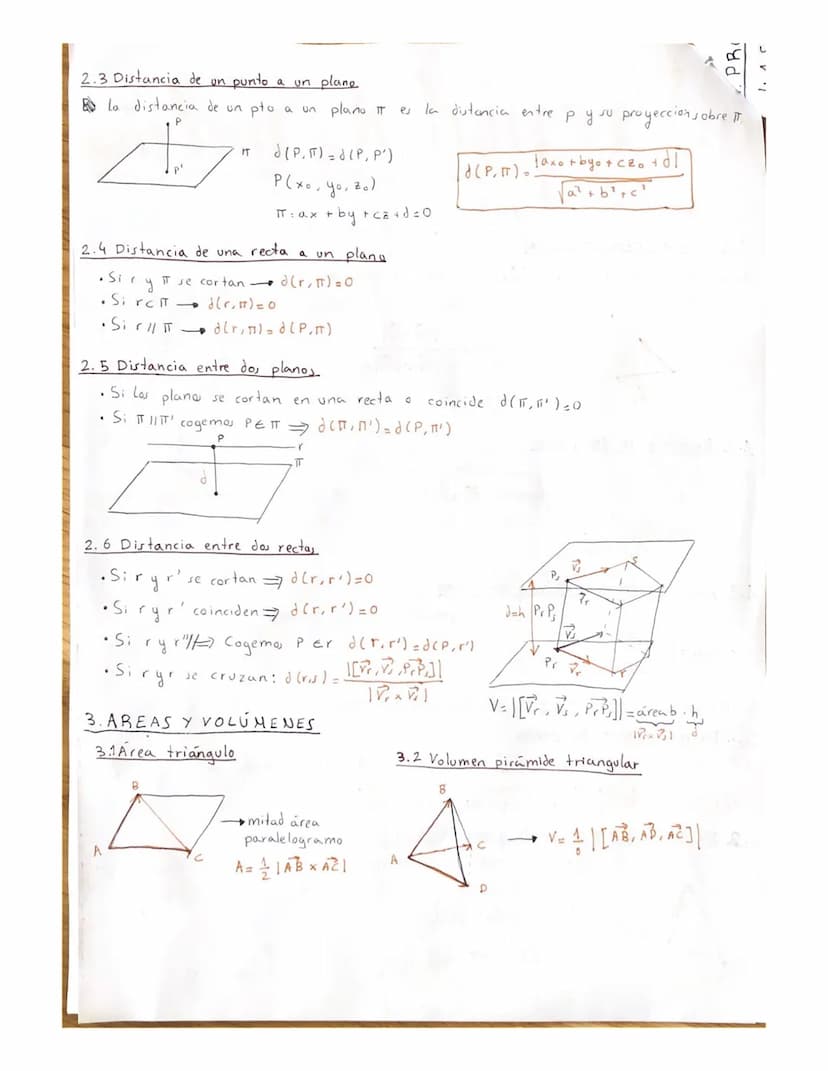 2.3 Distancia de un punto a un plano
la distancia de un pto a un plano π es la distancia entre p y su proyeccion sobre π
P
π
P'
d(P,π)=d(P,P')
P(x₀, y₀, z₀)
π: ax + by + cz + d = 0
d(P,π) = |ax₀ + by₀ + cz₀ + d| / √(a² + b² + c²)
2.4 Distancia de una recta a un plano
• Si r y π se cortan → d(r,π)=0
• Si r⊂π → d(r,π)=0
• Si r // π → d(r,π) = d(P,π)
2.5 Distancia entre dos planos
• Si los planos se cortan en una recta o coincide d(π,π')=0
• Si π // π' cogemos P∈π ⇒ d(π,π')=d(P,π')
P
r
π
d
2.6 Distancia entre dos rectas
• Si r y r' se cortan ⇒ d(r,r')=0
• Si r y r' coinciden ⇒ d(r,r')=0
• Si r y r' // ⇒ Cogemos P ∈ r d(r,r')=d(P,r')
• Si r y r se cruzan: d(r,s) = |[v⃗r, v⃗s, PrPs]| / |v⃗r x v⃗s|
Ps
v⃗s
s
v⃗r
d=h
PrPs
v⃗s
Pr
v⃗r
r
V=|[v⃗r, v⃗s, PrPs]| = área b · h
|v⃗r x v⃗s| d
3. AREAS Y VOLÚMENES
3.1 Área triángulo
B
A
C
→ mitad área
paralelogramo
A = 1/2 |AB x AC|
3.2 Volumen pirámide triangular
B
A
C
D
→ V = 1/6 |[AB, AD, AC]|